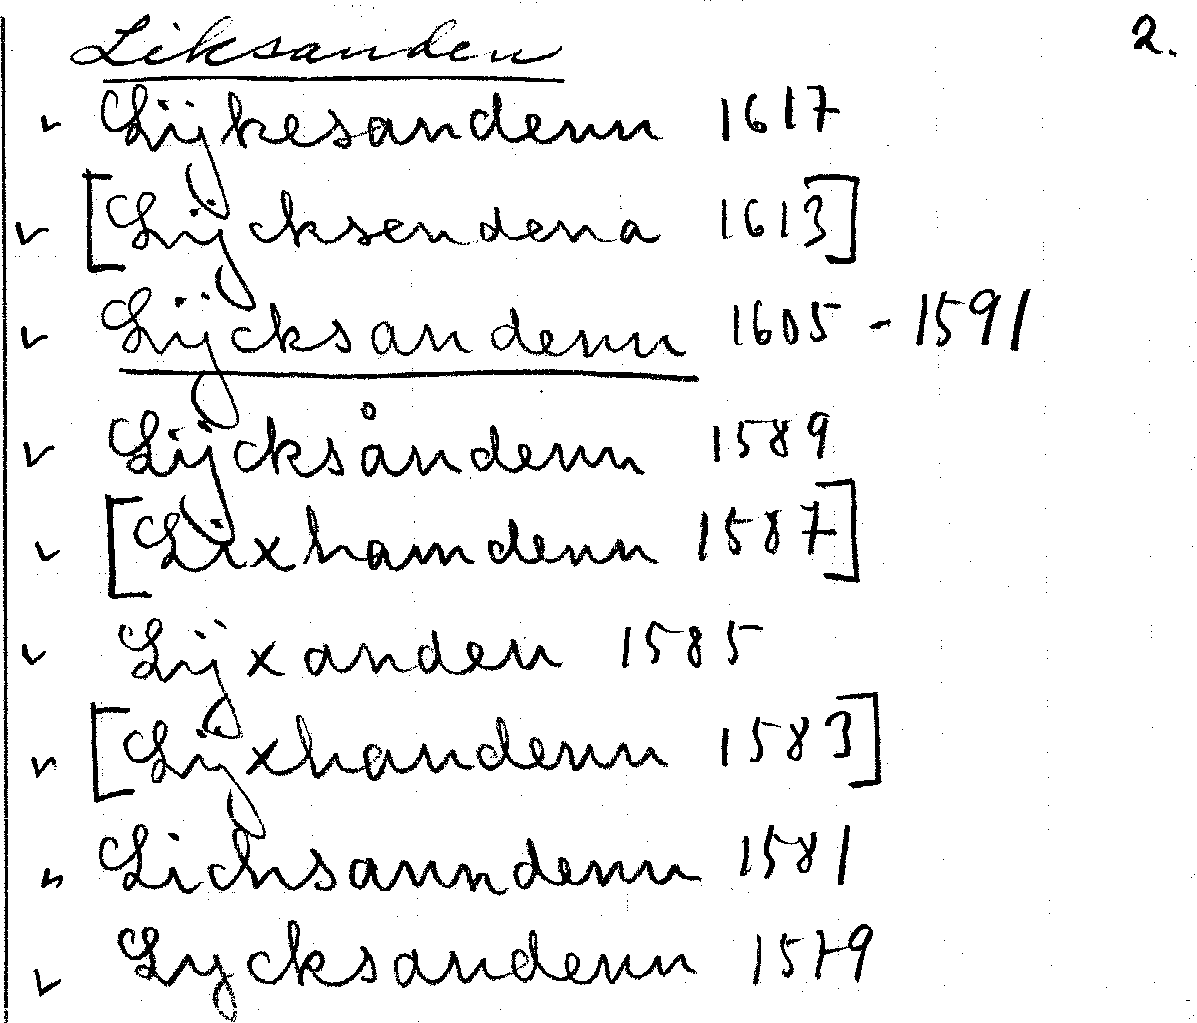 Liksanden 2.
✓ Lÿkesandenn 1617
✓ [Lÿcksendena 1613]
✓ Lÿcksandenn 1605 - 1591
✓ Lÿcksåndenn 1589
✓ [Lixhamdenn 1587]
✓ Lÿxanden 1585
✓ [Lÿxhandenn 1583]
✓ Lichsanndenn 1581
✓ Lycksandenn 1579